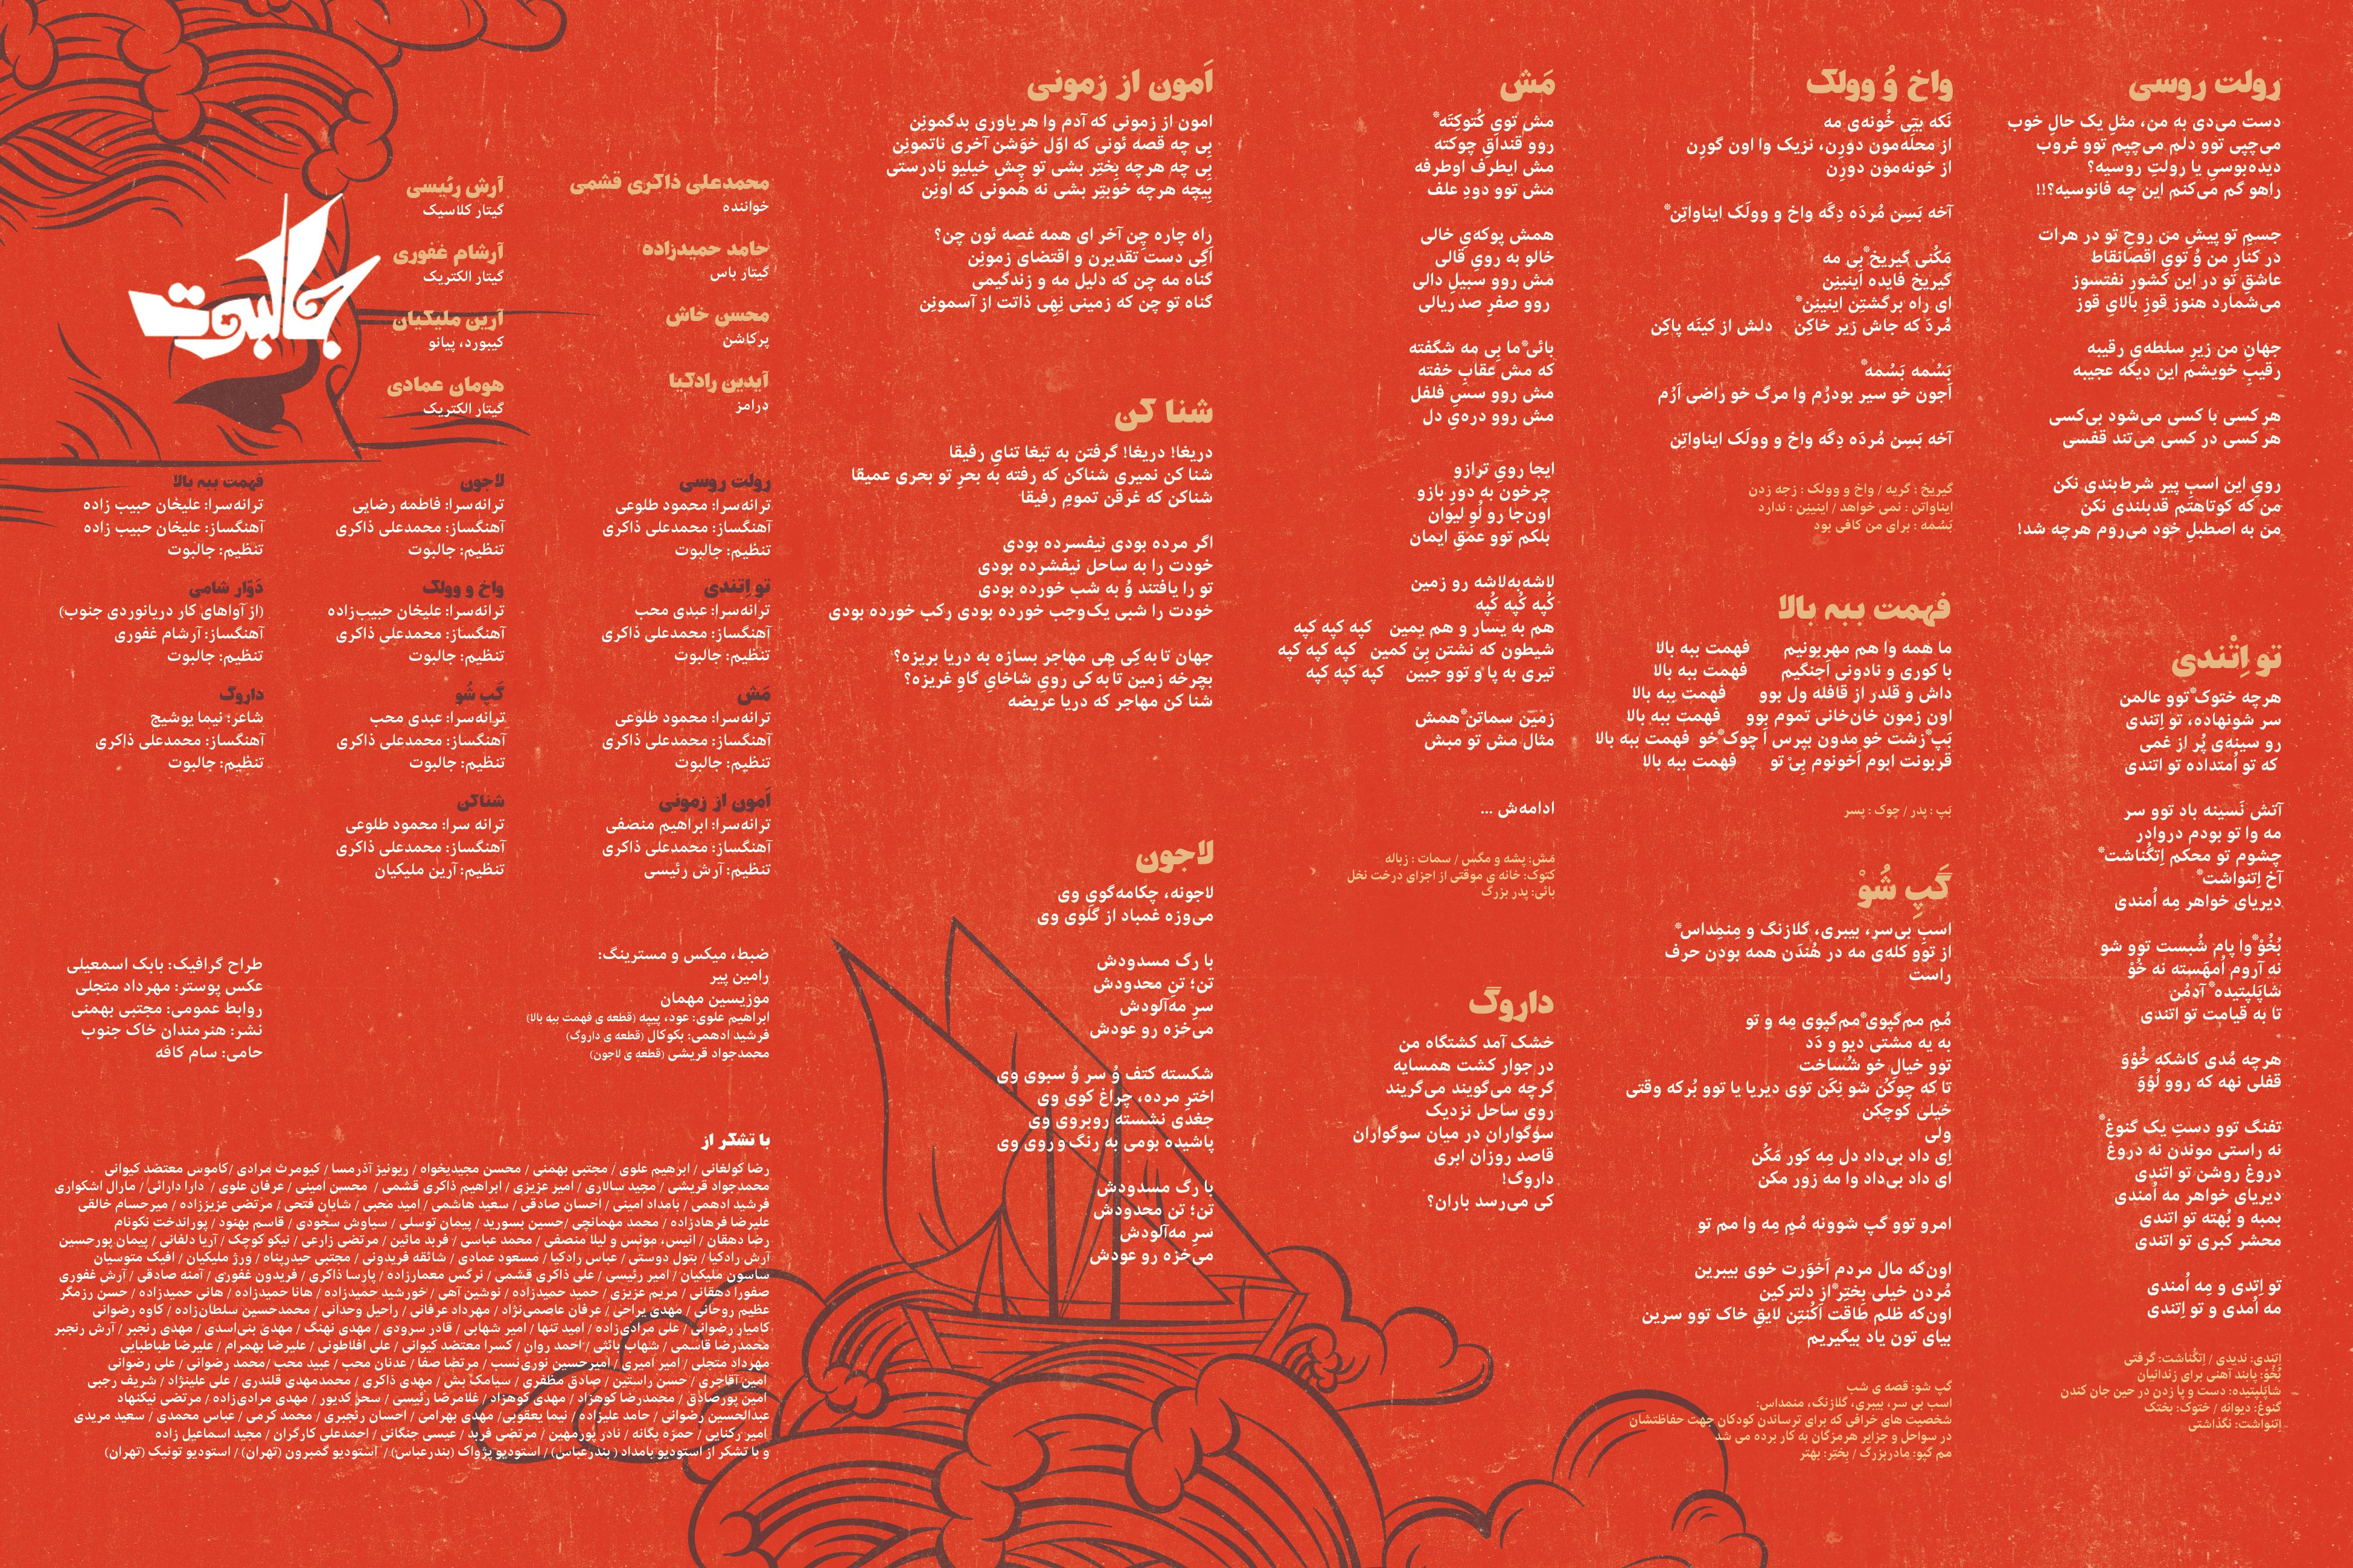 رولت روسی
دست می‌دی به من، مثلِ یک حالِ خوب
می‌چپی توو دلم می‌چپم توو غروب
دیده‌بوسیِ یا رولتِ روسیه؟
راهو گم می‌کنم این چه فانوسیه؟!!
جسمِ تو پیشِ من روحِ تو در هرات
در کنارِ من وُ تویِ اقصانقاط
عاشقِ تو در این کشورِ نفتسوز
می‌شمارد هنوز قوزِ بالایِ قوز
جهانِ من زیرِ سلطه‌یِ رقیبه
رقیبِ خویشم این دیگه عجیبه
هر کسی با کسی می‌شود بی‌کسی
هر کسی در کسی می‌تند قفسی
رویِ این اسبِ پیر شرط‌بندی نکن
من که کوتاهتم قدبلندی نکن
من به اصطبلِ خود می‌روم هرچه شد!
تو اِتْندیِ
هرچه ختوک* توو عالمن
سر شونهاده، تو اِتندی
رو سینه‌ی پُر از غمی
که تو اُمتداده تو اتندی
آتش نَسینه باد توو سر
مه وا تو بودم دروادِر
چشوم تو محکم اِتگُناشت*
آخ اِتنواشت*
دیریای خواهر مِه اُمندی
بُخُوْ* وا پام شُبست توو شو
نه آروم اُمهَسته نه خُوْ
شاپَلپتیده* آدمُن
تا به قیامت تو اتندی
هرچه مُدی کاشکه خُوْوَ
قفلی نهه که روو لُوْوَ
تفنگ توو دستِ یک گنوغ*
نه راستی موندن نه دروغ
دروغ روشن تو اتندی
دیریای خواهر مه اُمندی
بمبه و بُهته تو اتندی
محشر کبری تو اتندی
تو اِتِدی و مِه اُمندی
مه اُمدی و تو اِتندی
اِتِندی: ندیدی / اِتگُناشت: گرفتی
بُخُوْ: پابند آهنی برای زندانیان
شاپَلپتیده: دست و پا زدن در حین جان کندن
گنوغ: دیوانه / ختوک: بختک
اِتنواشت: نگذاشتی
واخ وُ وولک
نَکه بیَتِی خُونه‌ی مه
از محله‌مون دورِن، نزیک وا اون گورِن
از خونه‌مون دورِن
آخه بَسِن مُردَه دِگَه واخ و وولَک ایناواتِن*
مَکُنی گیریخ* بِی مه
گیریخ فایده اینینِن
ای راه برگشتِن اینینِن*
مُردَ که جاش زیر خاکِن دلش از کینَه پاکِن
بَسُمه بَسُمَه*
اَجون خو سیر بودرُم وا مرگ خو راضی اَرُم
آخه بَسِن مُردَه دِگَه واخ و وولَک ایناواتِن
گیریخ : گریه / واخ و وولک : زجه زدن
ایناواتن : نمی خواهد / اینینِن : ندارد
بَسُمَه : برای من کافی بود
فهمت ببه بالا
ما همه وا هم مهربونیم فهمت ببه بالا
با کوری و نادونی اَجنگیم فهمت ببه بالا
داش و قلدر از قافله ول بوو فهمت ببه بالا
اون زمون خان‌خانی تموم بوو فهمت ببه بالا
بَپ* زشت خو مدون بپرس اَ چوک* خو فهمت ببه بالا
قربونت ابوم اَخونوم بِیْ تو فهمت ببه بالا
بَپ : پدر / چوک : پسر
گَپِ شُوْ
اسبِ بی‌سر، بیبری، گلازنگ و مِنمِداس*
از توو کله‌ی مه در هُندَن همه بودن حرف
راست
مُم مم‌گپوی* مم‌گپوی مِه و تو
به یه مشتی دیو و دَد
توو خیالِ خو شُساخت
تا که چوکُن شو نِکَن توی دیریا یا توو بُرکه وقتی
خیلی کوچکن
ولی
اِی داد بی‌داد دل مِه کور مَکُن
ای داد بی‌داد وا مه زور مکن
امرو توو گپ شوونه مُمِ مِه وا مم تو
اون‌که مال مردم اَخوَرت خوی بیبرین
مُردن خیلی بِختِر* از دلترکین
اون‌که ظلم طاقت اَکُنتِن لایقِ خاک توو سرین
بیای تون یاد بیگیریم
گپ شو: قصه ی شب
اسب بی سر، بیبری، گلازنگ، منمداس:
شخصیت های خرافی که برای ترساندن کودکان جهت حفاظتشان
در سواحل و جزایر هرمزگان به کار برده می شد
مم گپو: مادربزرگ / بِختِر: بهتر
مَش
مش تویِ کُتوکِتَه*
روو قنداقِ چوکته
مش ایطرف اوطرفه
مش توو دودِ علف
همش پوکه‌یِ خالی
خالو به رویِ قالی
مش روو سبیلِ دالی
روو صفرِ صد ریالی
بائی* ما بِی مه شگفته
که مش عقابِ خفته
مش روو سسِ فلفل
مش روو دره‌یِ دل
ایجا رویِ ترازو
چرخون به دورِ بازو
اون‌جا رو لُوِ لیوان
بلکم توو عمقِ ایمان
لاشه‌به‌لاشه رو زمین
کُپه کُپه کُپه
هم به یسار و هم یمین کپه کپه کپه
شیطون که نشتن بِنْ کمین کپه کپه کپه
تیری به پا و توو جبین کپه کپه کپه
زمین سماتن* همش
مثالِ مش تو مبش
ادامه‌ش ...
مَش: پشه و مگس / سمات : زباله
کتوک: خانه ی موقتی از اجزای درخت نخل
بائی: پدر بزرگ
داروگ
خشک آمد کشتگاه من
در جوار کشت همسایه
گرچه می‌گویند می‌گریند
روی ساحل نزدیک
سوگواران در میان سوگواران
قاصد روزان ابری
داروگ!
کی می‌رسد باران؟
اَمون از زمونی
امون از زمونی که آدم وا هر یاوری بدگمونِن
بِی چه قصه ئونی که اوّل خوَشن آخری ناتمونِن
بِی چه هرچه بِختِر بشی تو چِشِ خیلیو نادرستی
بِیچه هرچه خوَبتِر بشی نه همونی که اونِن
راه چاره چن آخر ای همه غصه ئون چن؟
اَگِی دست تقدیرن و اقتضای زمونِن
گناه مه چن که دلیل مه و زندگیمی
گناه تو چن که زمینی نِهی ذاتت از آسمونِن
شنا کن
دریغا! دریغا! گرفتن به تیغا تنایِ رفیقا
شنا کن نمیری شناکن که رفته به بحرِ تو بحری عمیقا
شناکن که غرقن تمومِ رفیقا
اگر مرده بودی نیفسرده بودی
خودت را به ساحل نیفشرده بودی
تو را یافتند وُ به شب خورده بودی
خودت را شبی یک‌وجب خورده بودی رکب خورده بودی
جهان تا به کِی هِی مهاجر بسازه به دریا بریزه؟
بچرخه زمین تا به کی رویِ شاخایِ گاوِ غریزه؟
شنا کن مهاجر که دریا عریضه
لاجون
لاجونه، چکامه‌گویِ وی
می‌وزه غمباد از گلوی وی
با رگ مسدودش
تن؛ تنِ محدودش
سرِ مه‌آلودش
می‌خزه رو عودش
شکسته کتف وُ سر وُ سبوی وی
اخترِ مرده، چراغ کوی وی
جغدی نشسته روبروی وی
پاشیده بومی به رنگ و روی وی
با رگ مسدودش
تن؛ تن محدودش
سرِ مه‌آلودش
می‌خزه رو عودش
محمدعلی ذاکری قشمی
خواننده
حامد حمیدزاده
گیتار باس
محسن خاش
پرکاشن
آیدین رادکیا
درامز
آرش رئیسی
گیتار کلاسیک
آرشام غفوری
گیتار الکتریک
آرین ملیکیان
کیبورد، پیانو
هومان عمادی
گیتار الکتریک
جالبوت
رولت روسی
ترانه‌سرا: محمود طلوعی
آهنگساز: محمدعلی ذاکری
تنظیم: جالبوت
تو اِتَندی
ترانه‌سرا: عبدی محب
آهنگساز: محمدعلی ذاکری
تنظیم: جالبوت
مَش
ترانه‌سرا: محمود طلوعی
آهنگساز: محمدعلی ذاکری
تنظیم: جالبوت
اَمون از زمونی
ترانه‌سرا: ابراهیم منصفی
آهنگساز: محمدعلی ذاکری
تنظیم: آرش رئیسی
لاجون
ترانه‌سرا: فاطمه رضایی
آهنگساز: محمدعلی ذاکری
تنظیم: جالبوت
واخ و وولک
ترانه‌سرا: علیخان حبیب‌زاده
آهنگساز: محمدعلی ذاکری
تنظیم: جالبوت
گَپ شُو
ترانه‌سرا: عبدی محب
آهنگساز: محمدعلی ذاکری
تنظیم: جالبوت
شناکن
ترانه سرا: محمود طلوعی
آهنگساز: محمدعلی ذاکری
تنظیم: آرین ملیکیان
فهمت ببه بالا
ترانه‌سرا: علیخان حبیب زاده
آهنگساز: علیخان حبیب زاده
تنظیم: جالبوت
دَوّار شامی
(از آواهای کار دریانوردی جنوب)
آهنگساز: آرشام غفوری
تنظیم: جالبوت
داروگ
شاعر: نیما یوشیج
آهنگساز: محمدعلی ذاکری
تنظیم: جالبوت
ضبط، میکس و مسترینگ:
رامین پیر
موزیسین مهمان
ابراهیم علوی: عود، پیپه (قطعه ی فهمت ببه بالا)
فرشید ادهمی: بکوکال (قطعه ی داروگ)
محمدجواد قریشی (قطعه ی لاجون)
طراح گرافیک: بابک اسمعیلی
عکس پوستر: مهرداد متجلی
روابط عمومی: مجتبی بهمنی
نشر: هنرمندان خاک جنوب
حامی: سام کافه
با تشکر از
رضا کولغانی / ابرهیم علوی / مجتبی بهمنی / محسن مجیدیخواه / ریونیز آذرمسا / کیومرث مرادی /کاموس معتضد کیوانی
محمدجواد قریشی / مجید سالاری / امیر عزیزی / ابراهیم ذاکری قشمی / محسن امینی / عرفان علوی / دارا دارائی / مارال اشکواری
فرشید ادهمی / بامداد امینی / احسان صادقی / سعید هاشمی / امید محبی / شایان فتحی / مرتضی عزیززاده / میرحسام خالقی
علیرضا فرهادزاده / محمد مهمانچی /حسین بسورید / پیمان توسلی / سیاوش سجودی / قاسم بهنود / پوراندخت نکونام
رضا دهقان / انیس، مونس و لیلا منصفی / محمد عباسی / فربد مائین / مرتضی زارعی / نیکو کوچک / آریا دلفانی / پیمان پورحسین
آرش رادکیا / بتول دوستی / عباس رادکیا / مسعود عمادی / شائقه فریدونی / مجتبی حیدرپناه / ورژ ملیکیان / افیک متوسیان
ساسون ملیکیان / امیر رئیسی / علی ذاکری قشمی / نرگس معمارزاده / پارسا ذاکری / فریدون غفوری / آمنه صادقی / آرش غفوری
صفورا دهقانی / مریم عزیزی / حمید حمیدزاده / نوشین آهی / خورشید حمیدزاده / هانا حمیدزاده / هانی حمیدزاده / حسن رزمگر
عظیم روحانی / مهدی براحی / عرفان عاصمی‌نژاد / مهرداد عرفانی / راحیل وحدانی / محمدحسین سلطان‌زاده / کاوه رضوانی
کامیار رضوانی / علی مرادی‌زاده / امید تنها / امیر شهابی / قادر سرودی / مهدی نهنگ / مهدی بنی‌اسدی / مهدی رنجبر / آرش رنجبر
محمدرضا قاسمی / شهاب بائثی / احمد روان / کسرا معتضد کیوانی / علی افلاطونی / علیرضا بهمرام / علیرضا طباطبایی
مهرداد متجلی / امیر امیری / امیرحسین نوری‌نسب / مرتضا صفا / عدنان محب / عبید محب /محمد رضوانی / علی رضوانی
امین آقاجری / حسن راستین / صادق مظفری / سیامک بش / مهدی ذاکری / محمدمهدی قلندری / علی علینژاد / شریف رجبی
امین پورصادق / محمدرضا کوهزاد / مهدی کوهزاد / غلامرضا رئیسی / سحر کدیور / مهدی مرادی‌زاده / مرتضی نیکنهاد
عبدالحسین رضوانی / حامد علیزاده / نیما یعقوبی/ مهدی بهرامی / احسان رنجبری / محمد کرمی / عباس محمدی / سعید مریدی
امیر رکنایی / حمزه یگانه / نادر پورمهین / مرتضی فربد / عیسی جنگانی / احمدعلی کارگران / مجید اسماعیل زاده
و با تشکر از استودیو بامداد (بندرعباس) / استودیو پژواک (بندرعباس) / استودیو گمبرون (تهران) / استودیو تونیک (تهران)